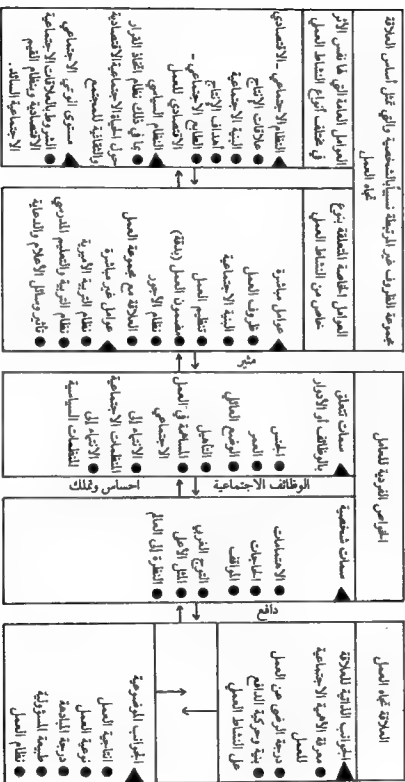 مجموعة الظروف غير المرتبطة نسبياً بالشخصية والتي تمثل أساس العلاقة
تجاه العمل
العوامل العامة التي لها نفس الأثر
في مختلف أنواع النشاط العملي
النظام الاجتماعي - الاقتصادي
علاقات الإنتاج
البنية الاجتماعية
أهداف الإنتاج
الطابع الاجتماعي -
الاقتصادي للعمل
النظام السياسي
بما في ذلك نظام اتخاذ القرار
حول الحياة الاجتماعية الاقتصادية
والثقافية للمجتمع
مستوى الوعي الاجتماعي
المشروط بالعلاقات الاجتماعية
الاقتصادية ونظام القيم
الاجتماعية السائد.
العوامل الخاصة المتعلقة بنوع
خاص من النشاط العملي
عوامل مباشرة
ظروف العمل
البنية الاجتماعية
تنظيم العمل
مضمون العمل (بدقة)
نظام الأجور
العلاقة مع مجموعة العمل
عوامل غير مباشرة
نظام التربية الأسرية
نظام التربية والتعليم المدرسي
تأثير وسائل الأعلام والدعاية
مثير
الخواص الفردية للعامل
سمات تتعلق
بالوظائف أو الأدوار
الجنس
العمر
الوضع العائلي
التأهيل
المساهمة في العمل
الاجتماعي
الانتماء إلى
المنظمات الاجتماعية
الانتماء إلى
المنظمات السياسية
الوظائف الاجتماعية
احساس وتملك
سمات شخصية
الاهتمامات
الحاجات
المواقف
المثل الأعلى
النظرة إلى العالم
دافع
العلاقة تجاه العمل
الجوانب الذاتية للعلاقة
معرفة الأهمية الاجتماعية
للعمل
درجة الرضى عن العمل
بنية وحركية الدافع
على النشاط العملي
الجوانب الموضوعية
انتاجية العمل
نوعية العمل
درجة المبادهة
طبيعة المسؤولية
نظام العمل